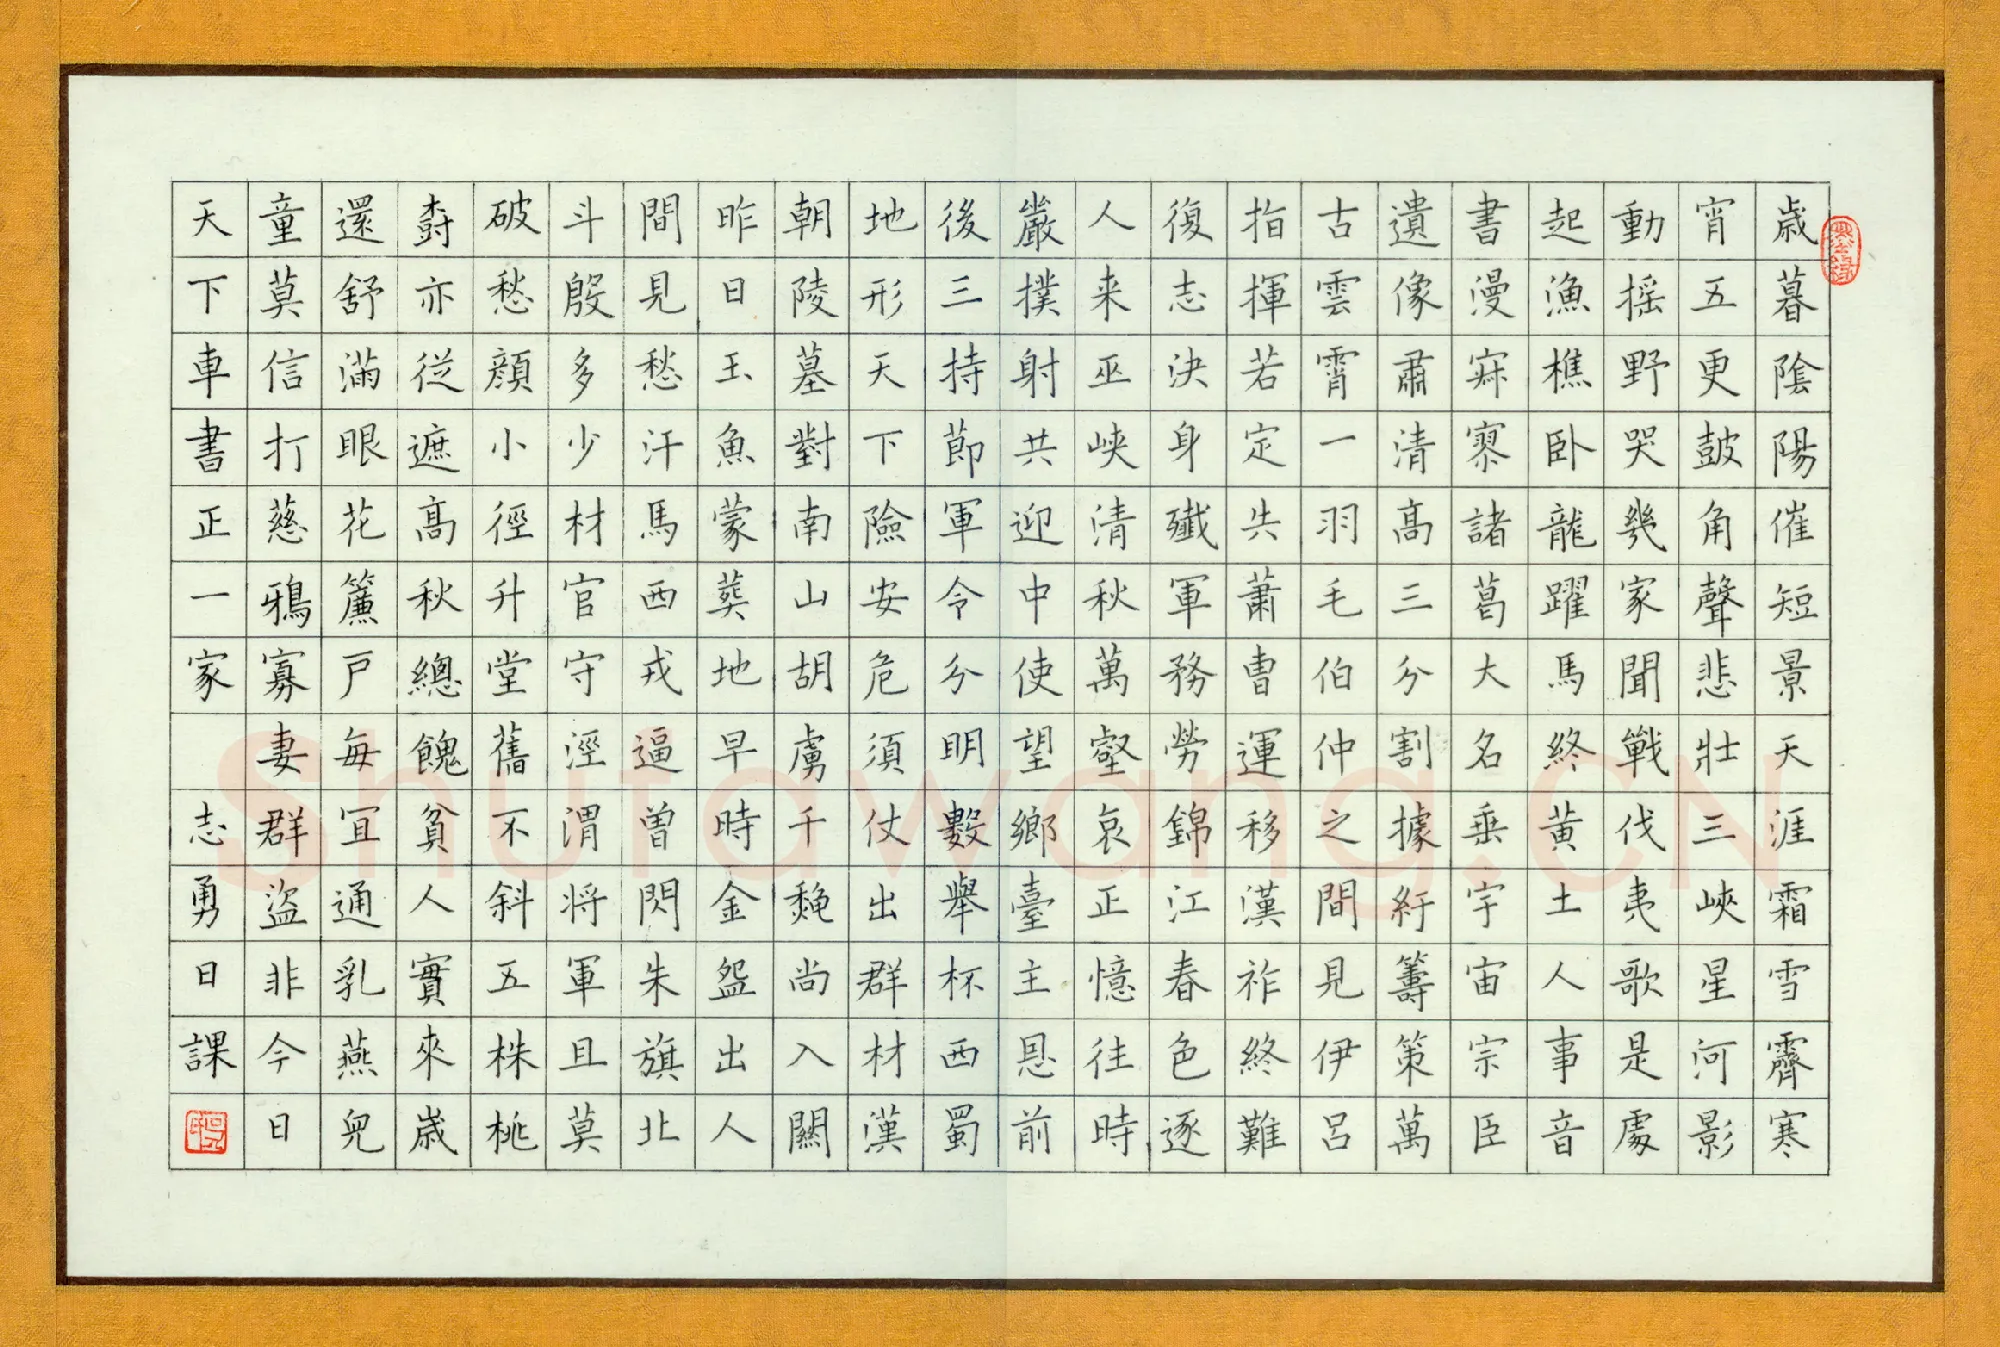 歳暮陰陽催短景天涯霜雪霽寒
宵五更鼓角聲悲壯三峽星河影
動摇野哭幾家聞戰伐夷歌是處
起漁樵卧龍躍馬終黃土人事音
書漫寂寥諸葛大名垂宇宙宗臣
遺像肅清高三分割據紆籌策萬
古雲霄一羽毛伯仲之間見伊呂
指揮若定失蕭曹運移漢祚終難
復志決身殲軍務勞錦江春色逐
人来巫峽清秋萬壑哀正憶往時
嚴撲射共迎中使望鄉臺主恩前
後三持節軍令分明數舉杯西蜀
地形天下險安危須仗出群材漢
朝陵墓對南山胡虜千龝尚入關
昨日玉魚蒙葬地早時金盌出人
間見愁汗馬西戎逼曾閃朱旗北
斗殷多少材官守涇渭将軍且莫
破愁顔小徑升堂舊不斜五株桃
樹亦從遮高秋總餽貧人實來歳
還舒滿眼花簾户每宜通乳燕兒
童莫信打慈鴉寡妻群盜非今日
天下車書正一家 志勇日課
Shufawang.CN